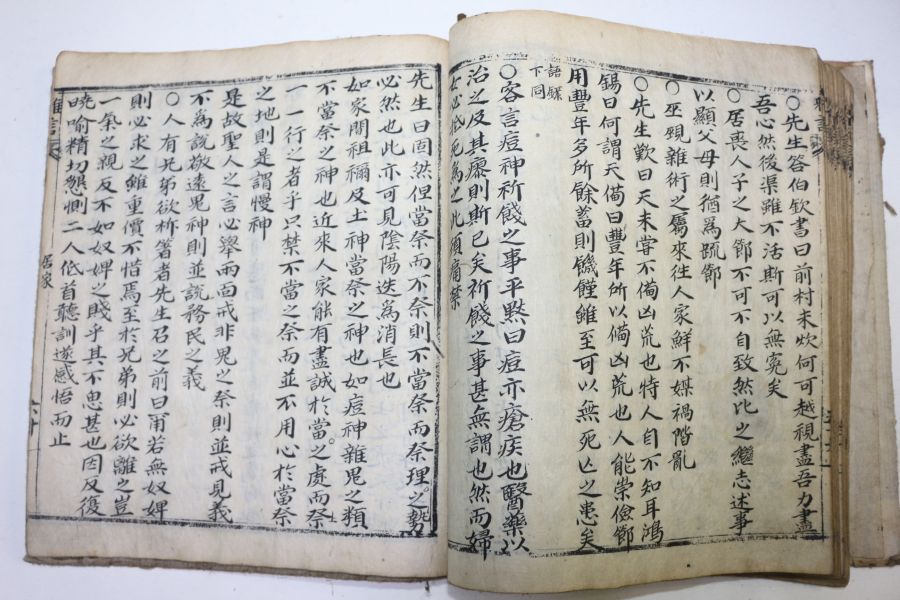 ○先生答伯欽書曰前村未炊何可越視盡吾力盡
吾心然後渠雖不活斯可以無寃矣
○居喪人子之大節不可不自致然比之繼志述事
以顯父母則猶爲䟽節
○巫覡雜術之屬來往人家鮮不媒禍階亂
○先生歎曰天未甞不備凶荒也特人自不知耳鴻
錫曰何謂天備曰豊年所以備凶荒也人能崇儉節
用豊年多所餘蓄則饑饉雖至可以無死亡之患矣
語録
下同
○客言痘神祈餞之事平默曰痘亦瘡疾也醫藥以
治之及其廖則斯已矣祈餞之事甚無謂也然而婦
女必死爲之此須痛禁
先生曰固然但當祭而不祭則不當祭而祭理之勢
必然也此亦可見陰陽迭爲消長也
如家間祖禰及土神當祭之神也如痘神雜鬼之類
不當祭之神也近來人家能有盡誠於當之處而祭
一一行之者乎只禁不當之祭而並不用心於當祭
之地則是謂慢神
是故聖人之言必擧兩面戒非鬼之祭則並戒見義
不爲說敬遠鬼神則並說務民之義
○人有兄弟欲析箸者先生召之前曰甫若無奴婢
則必求之雖重價不惜焉至於兄弟則必欲離之豈
一氣之親反不如奴婢之賤乎其不思甚也因反復
曉喩精切懇惻二人低首聽訓遂感悟而止
雅言
居家